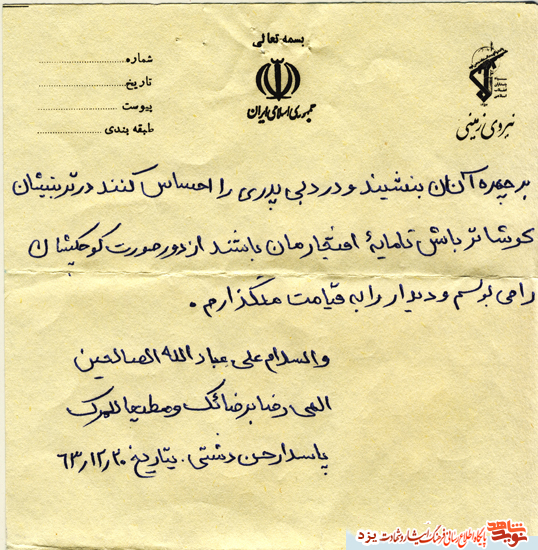 بسمه تعالی
جمهوری اسلامی ایران
نیروی زمینی
شماره
تاریخ
پیوست
طبقه بندی
بر چهره آنان بنشیند و درد بی پدری را احساس کنند در تربیتشان
کوشاتر باش تا مایهٔ افتخارمان باشند از دور صورت کوچکشان
را می بوسم و دیدار را به قیامت میگذارم.
والسلام علی عباد الله الصالحین
الهی رضا برضائک و مطیعا لامرک
پاسدار حسن دشتی. بتاریخ ۶۳/۱۲/۲۰
نوید شاهد
پایگاه اطلاع رسانی فرهنگ ایثار و شهادت یزد